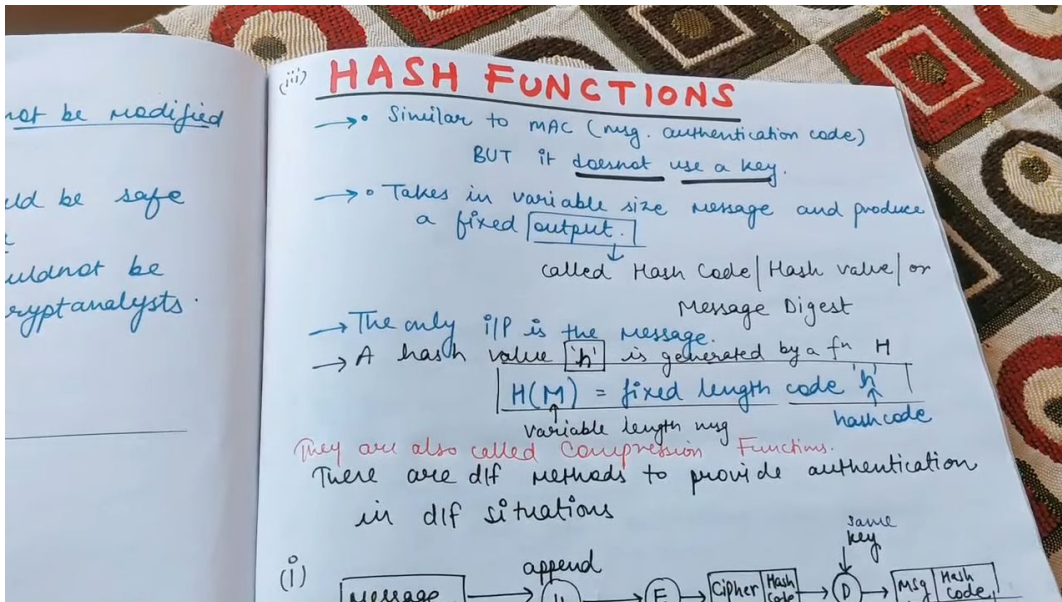 not be modified
uld be safe
uldnot be
ryptanalysts.
(iii) HASH FUNCTIONS
→• Similar to MAC (msg. authentication code)
BUT it doesnot use a key.
→• Takes in variable size message and produce
a fixed output.
↓
called Hash Code | Hash value | or
Message Digest
→ The only i/P is the message.
→ A hash value 'h' is generated by a fn H
H(M) = fixed length code 'h'
variable length msg
hashcode
They are also called Compression Functions.
There are d/f methods to provide authentication
in d/f situations
same
key
(i) append
Message → || → E → Cipher | Hash Code → D → Msg | Hash Code